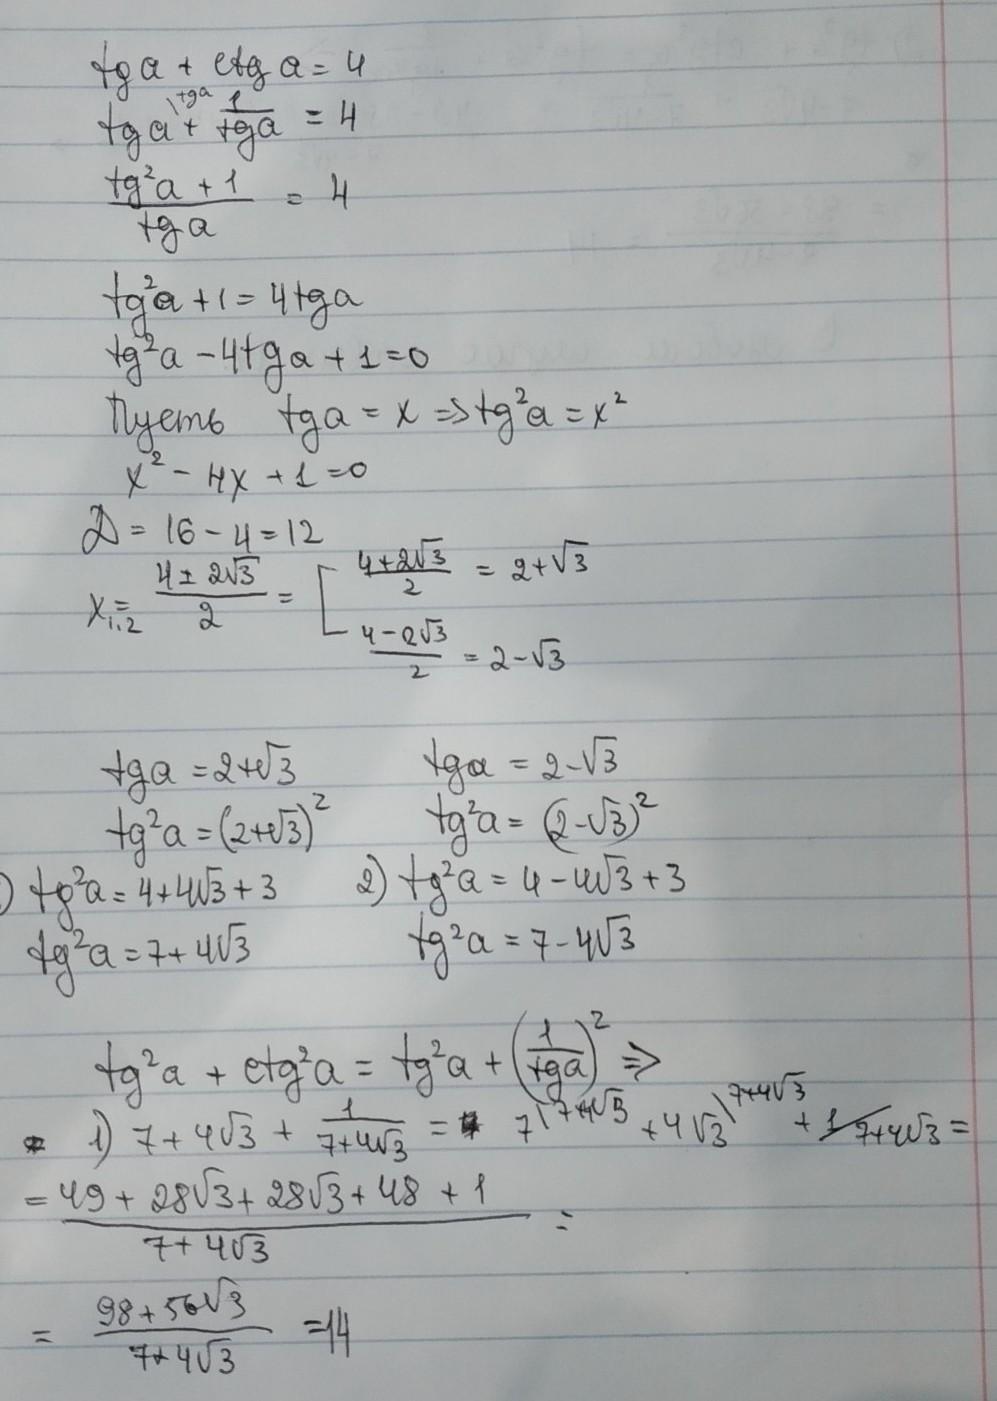 tga + ctga = 4
tga\tga + 1/tga = 4
(tg²a + 1)/tga = 4
tg²a + 1 = 4tga
tg²a - 4tga + 1 = 0
Пусть tga = x => tg²a = x²
x² - 4x + 1 = 0
D = 16 - 4 = 12
x₁,₂ = (4 ± 2√3)/2 = [ (4+2√3)/2 = 2+√3
(4-2√3)/2 = 2-√3
tga = 2+√3 tga = 2-√3
tg²a = (2+√3)² tg²a = (2-√3)²
) tg²a = 4+4√3+3 2) tg²a = 4-4√3+3
tg²a = 7+4√3 tg²a = 7-4√3
tg²a + ctg²a = tg²a + (1/tga)² =>
1) 7+4√3 + 1/(7+4√3) = 7\7+4√3 + 4√3\7+4√3 + 1/7+4√3 =
= (49 + 28√3 + 28√3 + 48 + 1)/(7+4√3) =
= (98+56√3)/(7+4√3) = 14